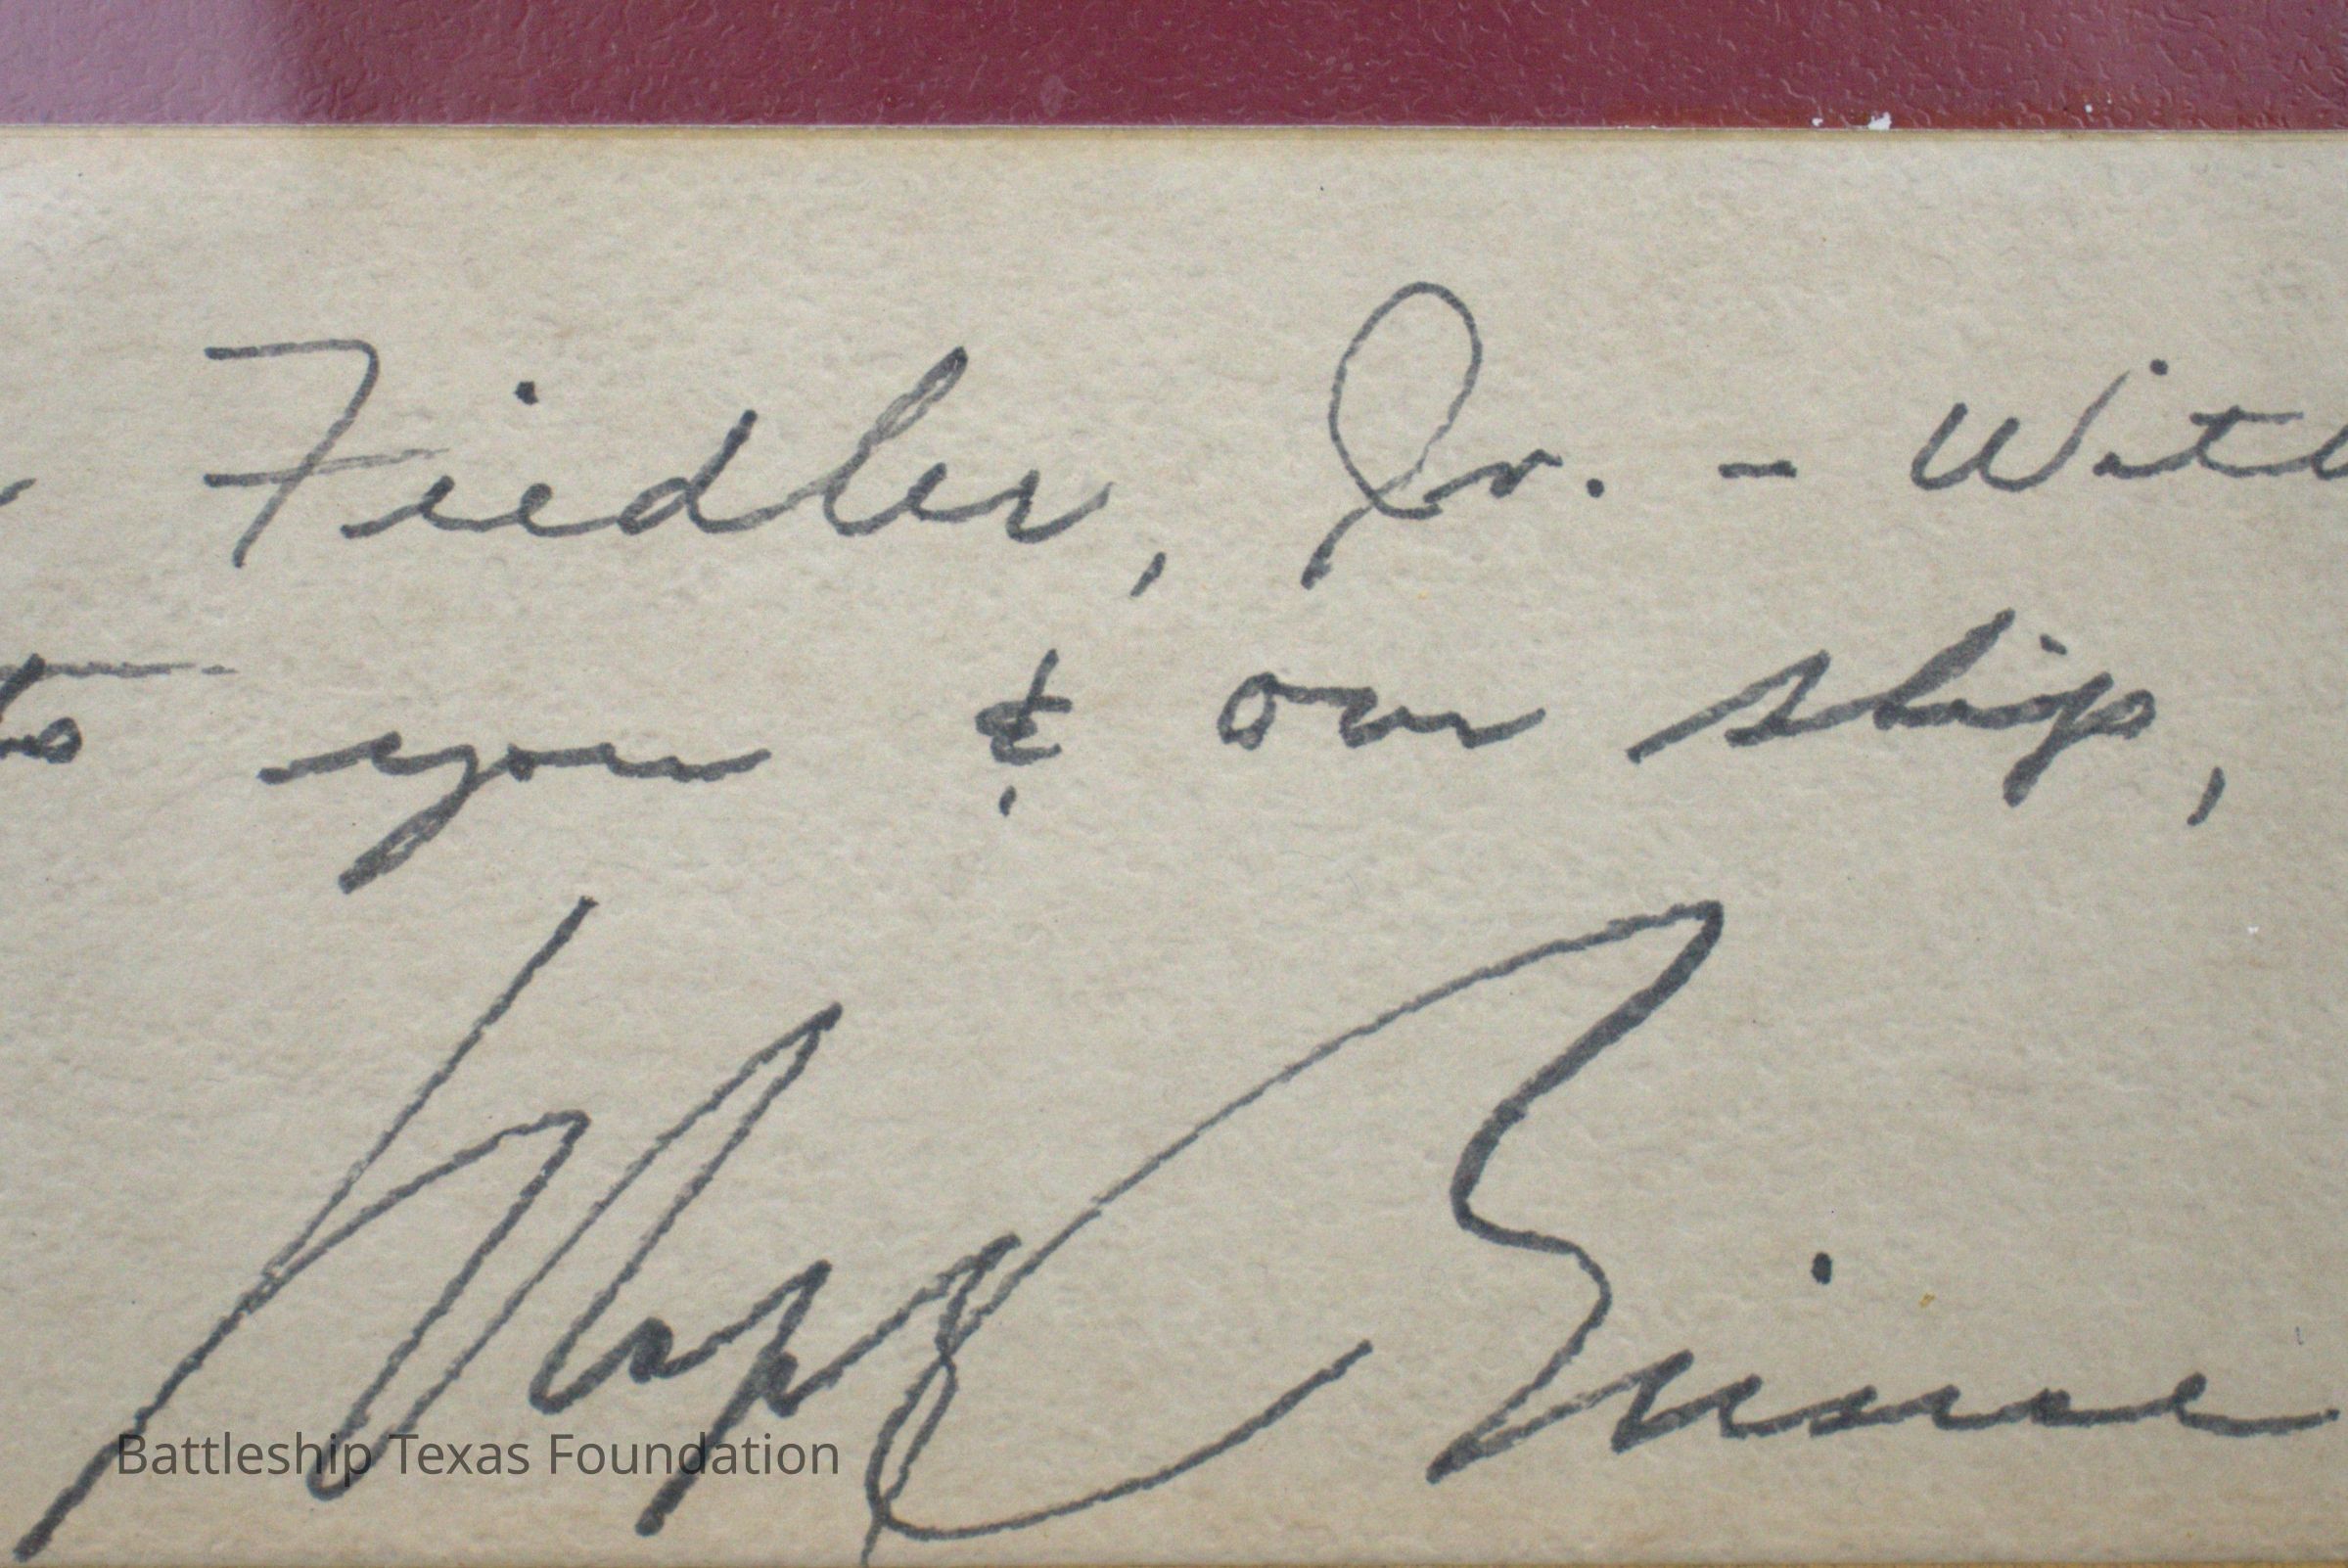 Fiedler, Jr. - With
to you & our ship,
Battleship Texas Foundation